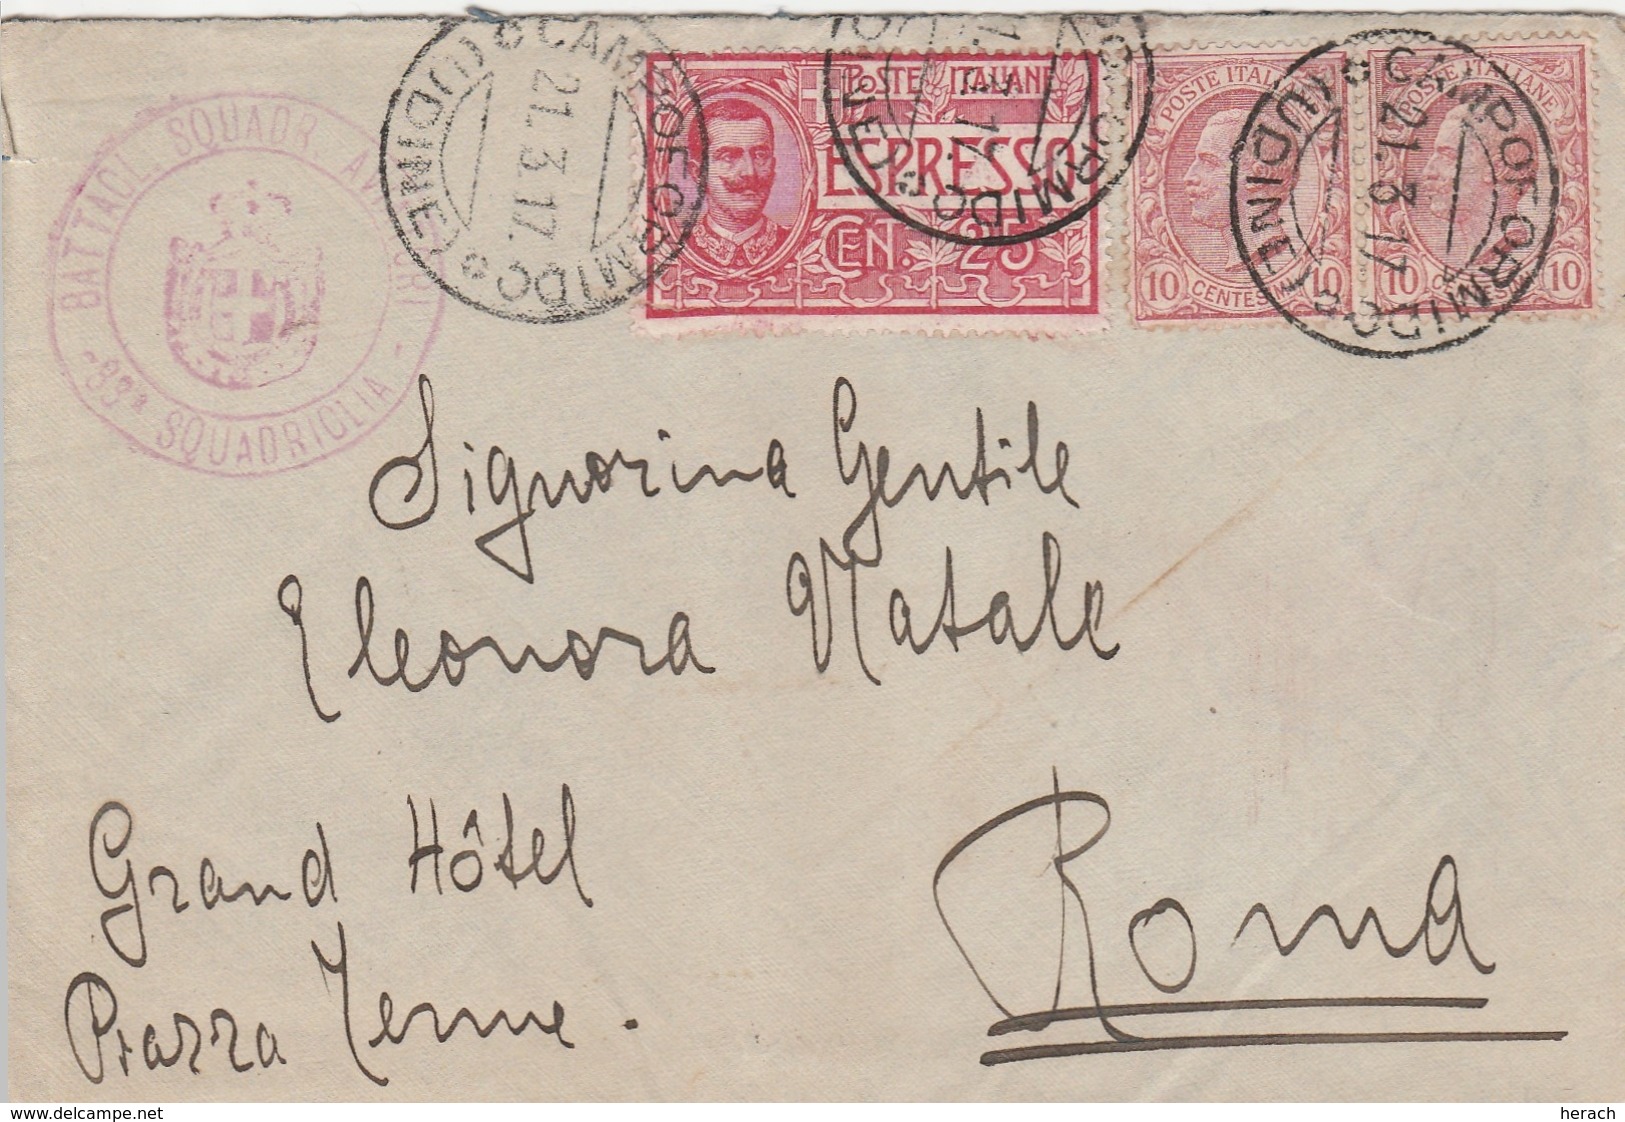 BATTAGL. SQUADR. AV
- 83ª SQUADRIGLIA -
CAMPOFORMIDO (UDINE)
21.3.17.
POSTE ITALIANE
ESPRESSO
CEN. 25
CAMPOFORMIDO (UDINE)
POSTE ITALIANE
10 CENTESIMI 10
POSTE ITALIANE
10 CENTESIMI 10
CAMPOFORMIDO (UDINE)
21.3.17
Signorina Gentile
Eleonora Natale
Grand Hôtel
Piazza Terme.
Roma
www.delcampe.net
herach